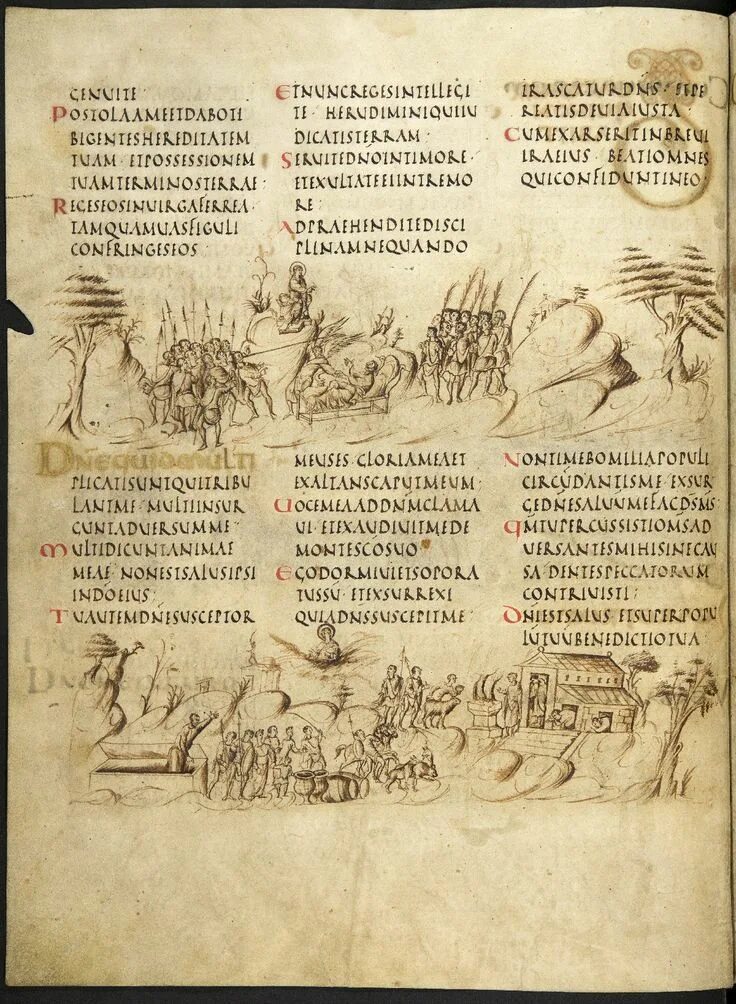 GENUITE·
POSTOLAAMEETDABOTI
BIGENTESHEREDITATEM
TUAM· ETPOSSESSIONEM
TUAMTERMINOSTERRAE·
REGESEOSINUIRGAFERREA·
TAMQUAMUASFIGULI
CONFRINGESEOS·
ETNUNCREGESINTELLEGI
TE· HERUDIMINIQUIIU
DICATISTERRAM·
SERUITEDN̄OINTIMORE·
ETEXULTATEEIINTREMO
RE·
ADPRAEHENDITEDISCI
PLINAMNEQUANDO
IRASCATURDN̄S· ETPE
REATISDEUIAIUSTA·
CUMEXARSERITINBREUI
IRAEIUS· BEATIOMNES
QUICONFIDUNTINEO·
DN̄EQUIDMULTI
PLICATISUNTQUITRIBU
LANTME· MULTIINSUR
GUNTADUERSUMME·
MULTIDICUNTANIMAE
MEAE· NONESTSALUSIPSI
INDŌEIUS·
TUAUTEMDN̄ESUSCEPTOR
MEUSES· GLORIAMEAET
EXALTANSCAPUTMEUM·
UOCEMEAADDN̄MCLAMA
UI· ETEXAUDIUITMEDE
MONTESCŌSUO·
EGODORMIUIETSOPORA
TUSSU· ETEXSURREXI
QUIADN̄SSUSCEPITME·
NONTIMEBOMILIAPOPULI
CIRCŪDANTISME· EXSUR
GEDN̄ESALUUMEFACDS̄MS̄
QM̄TUPERCUSSISTIOM̄SAD
UERSANTESMIHISINECAU
SA· DENTESPECCATORUM
CONTRIUISTI·
DN̄IESTSALUS· ETSUPERPOPU
LŪTUŪBENEDICTIOTUA·